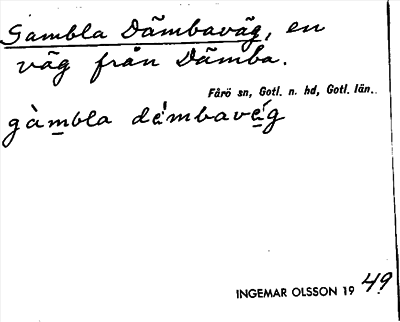 Gambla Dämbaväg, en
väg från Dämba.
Fårö sn, Gotl. n. hd, Gotl. län.
gàmbla dé̜mbavé̜g
INGEMAR OLSSON 1949